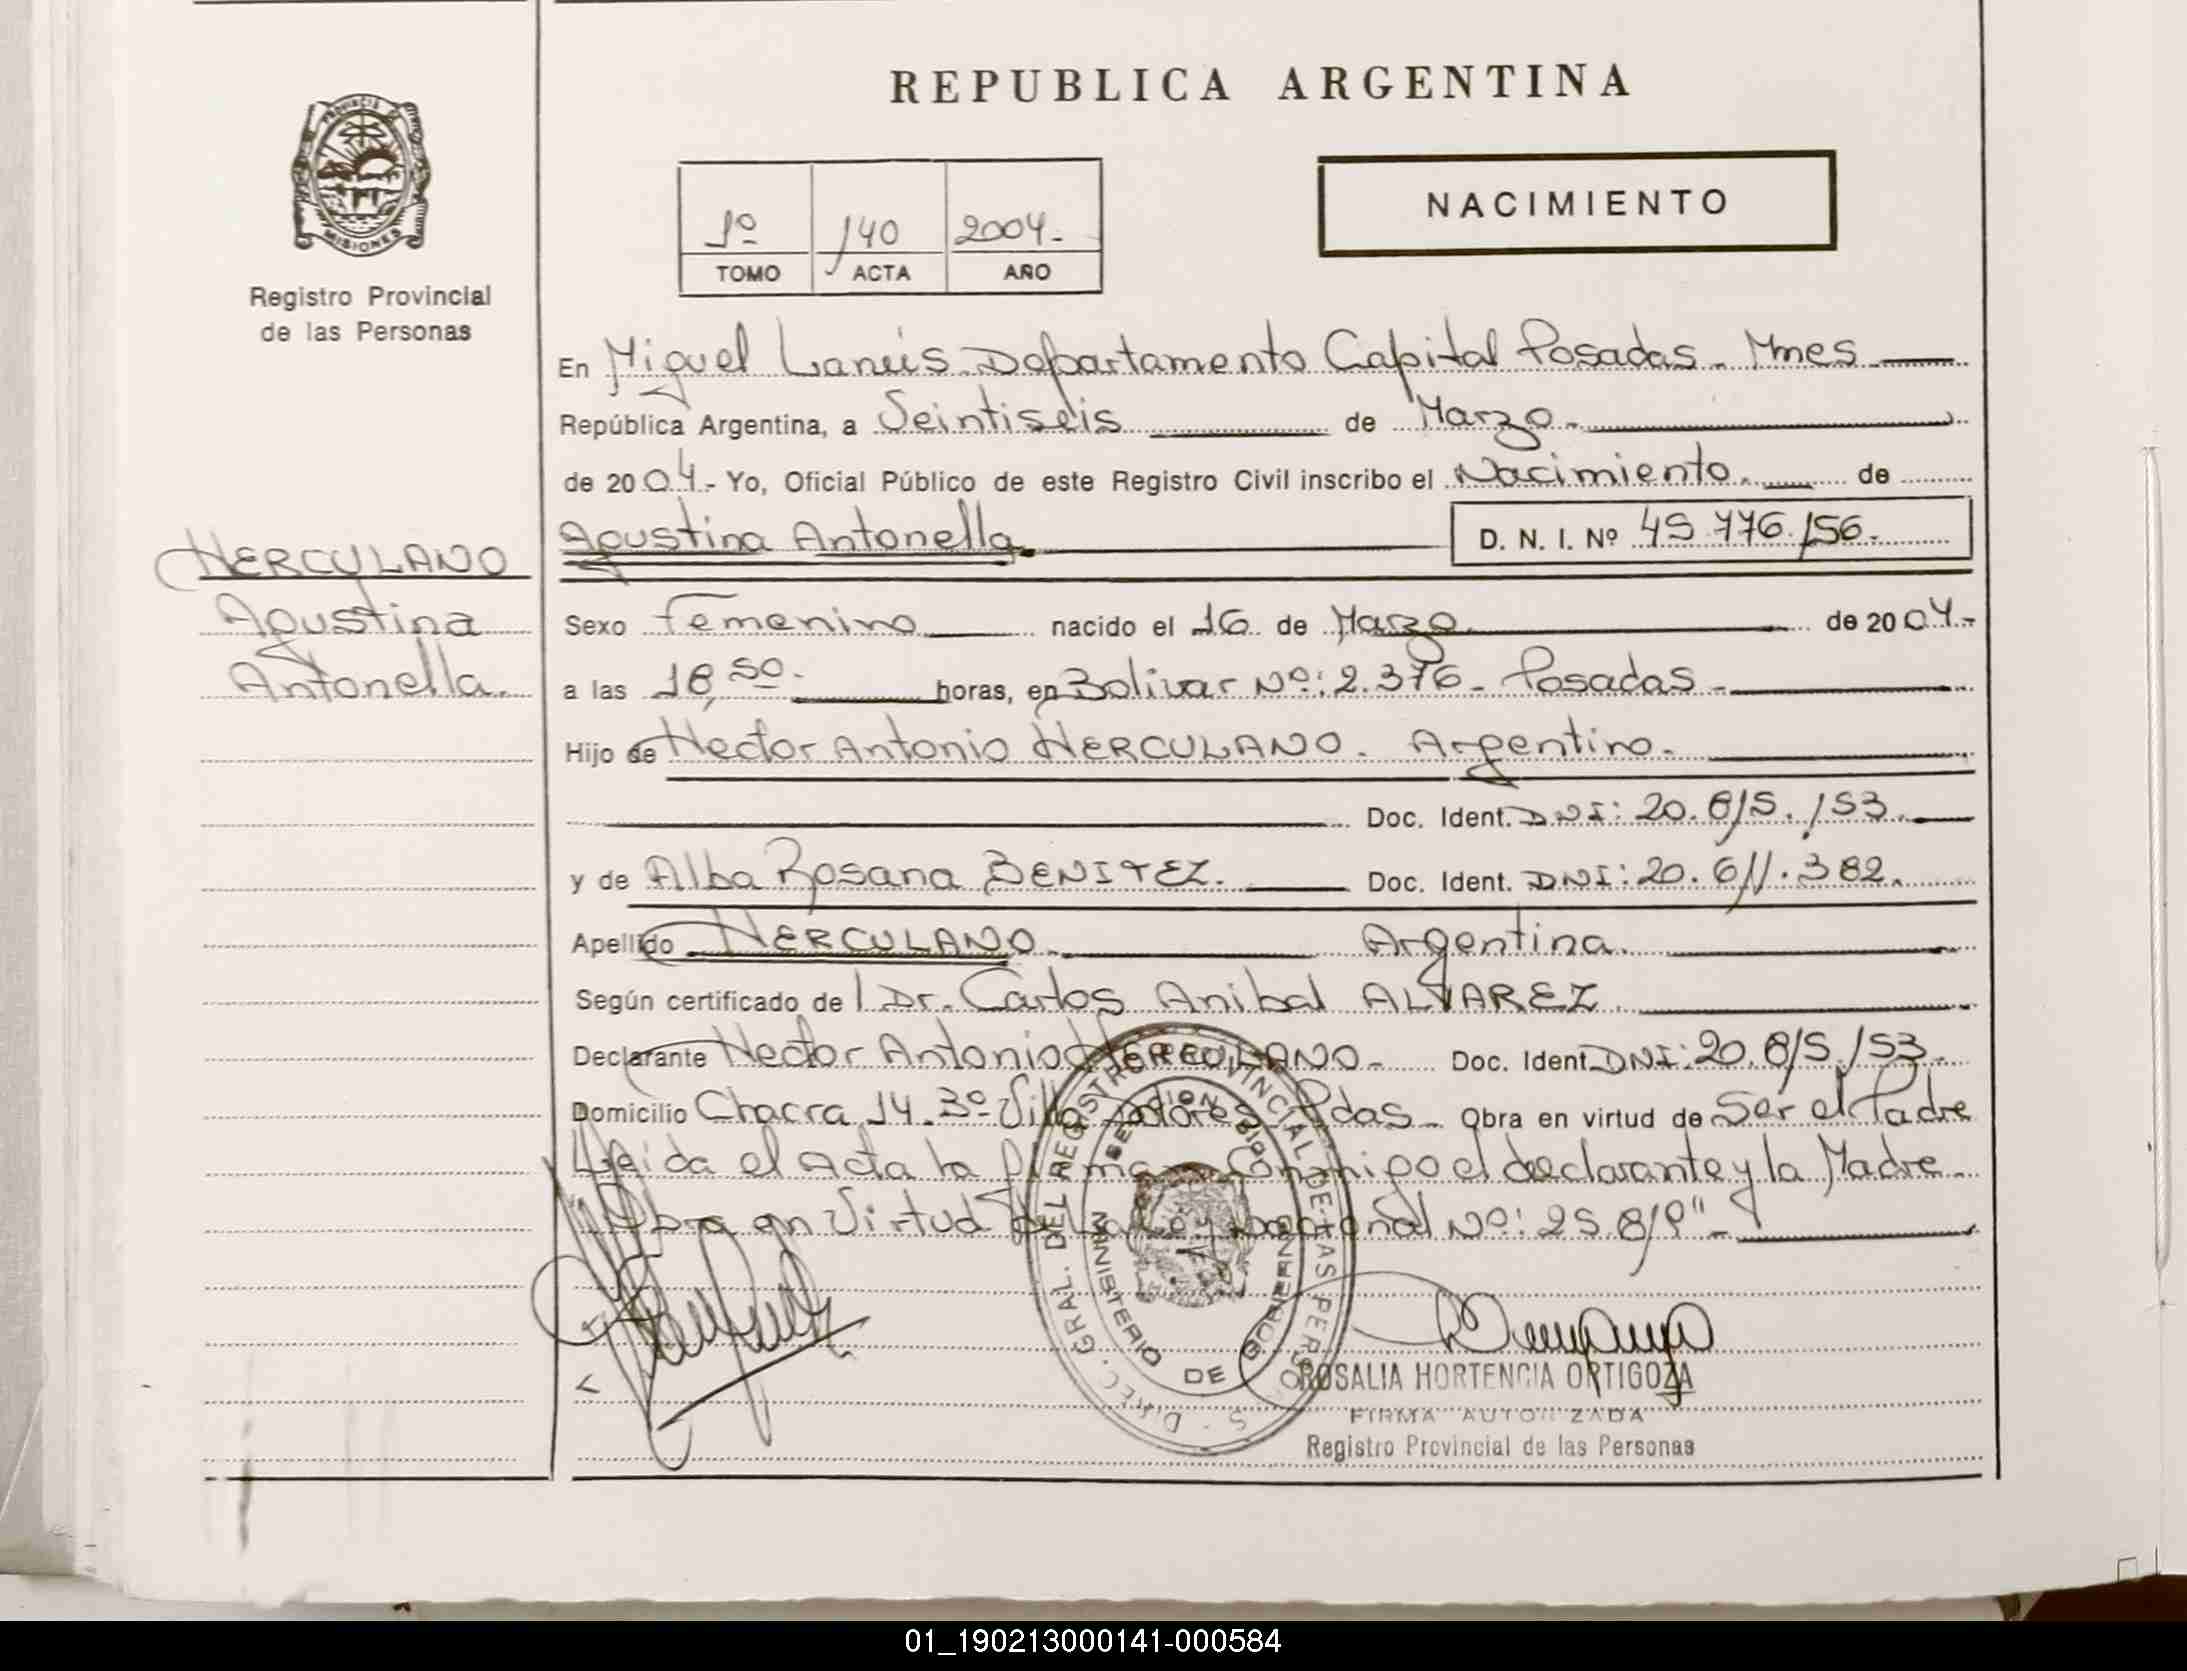 REPUBLICA ARGENTINA
PROVINCIA DE MISIONES
Registro Provincial
de las Personas
1º 140 2004-
TOMO ACTA AÑO
NACIMIENTO
En Miguel Lanús Departamento Capital Posadas - Mnes
República Argentina, a Veintiséis de Marzo-
de 2004- Yo, Oficial Público de este Registro Civil inscribo el Nacimiento de
HERCULANO
Agustina
Antonella.
Agustina Antonella D. N. I. Nº 45.776.156-
Sexo Femenino nacido el 16 de Marzo de 2004-
a las 18,50- horas, en Bolivar Nº: 2.376- Posadas-
Hijo de Hector Antonio HERCULANO- Argentino-
Doc. Ident. DNI: 20.815.153-
y de Alba Rosana BENITEZ. Doc. Ident. DNI: 20.611.382.
Apellido HERCULANO Argentina.
Según certificado de l Dr. Carlos Anibal ALVAREZ.
Declarante Hector Antonio HERCULANO- Doc. Ident. DNI: 20.815.153-
Domicilio Chacra 14- 3º Villa Pdas- Obra en virtud de Ser el Padre
Leida el Acta la firman Conmigo el declarante y la Madre-
Obra en Virtud de la Ley Nacional Nº: 25.819"-
DIREC. GRAL. DEL REGISTRO PROVINCIAL DE LAS PERSONAS
MINISTERIO DE GOBIERNO
ROSALIA HORTENCIA ORTIGOZA
FIRMA AUTORIZADA
Registro Provincial de las Personas
01_190213000141-000584